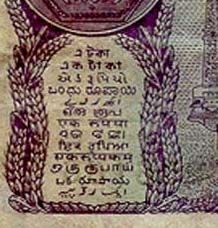 এ টকা
এক টাকা
એક રૂપિયો
ಒಂದು ರೂಪಾಯಿ
ഒരു രൂപ
एक रुपया
ଏକ ଟଙ୍କା
ਇਕ ਰੁਪਿਆ
एकरूप्यकम्
ஒரு ரூபாய்
ఒక రూపాయి
ایک روپیہ